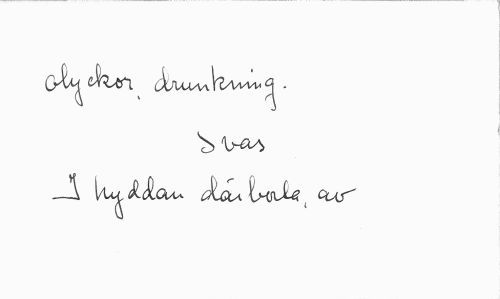 olyckor, drunkning.
Ivas
I hyddan därborta, av